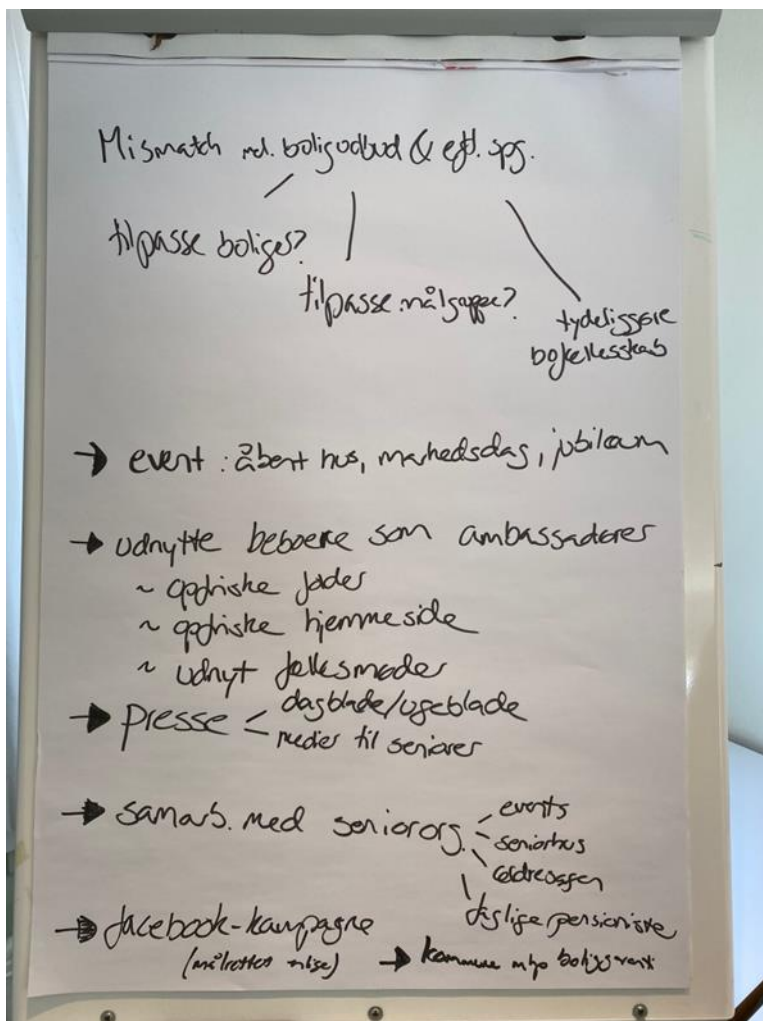 Mismatch ml. boligudbud & eft. spg.
tilpasse boliger?
tilpasse målgruppe?
tydeligere
bofællesskab
→ event: åbent hus, markedsdag, jubilæum
→ udnytte beboere som ambassadører
~ opfriske
~ opfriske hjemmeside
~ udnyt fællesmøder
→ presse
dagblade/ugeblade
medier til seniorer
→ samarb. med seniororg.
events
seniorhus
ældresagen
faglige pensioniste
→ facebook-kampagne
(målrettet)
→ kommune mhp